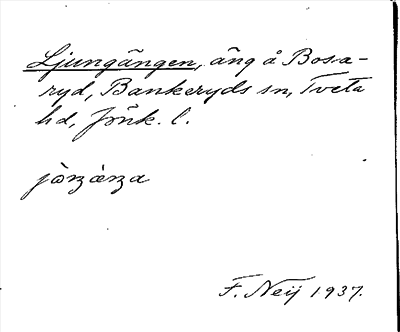 Ljungängen, äng å Bosa-
ryd, Bankeryds sn, Tveta
hd, Jönk. l.
F. Neij 1937.